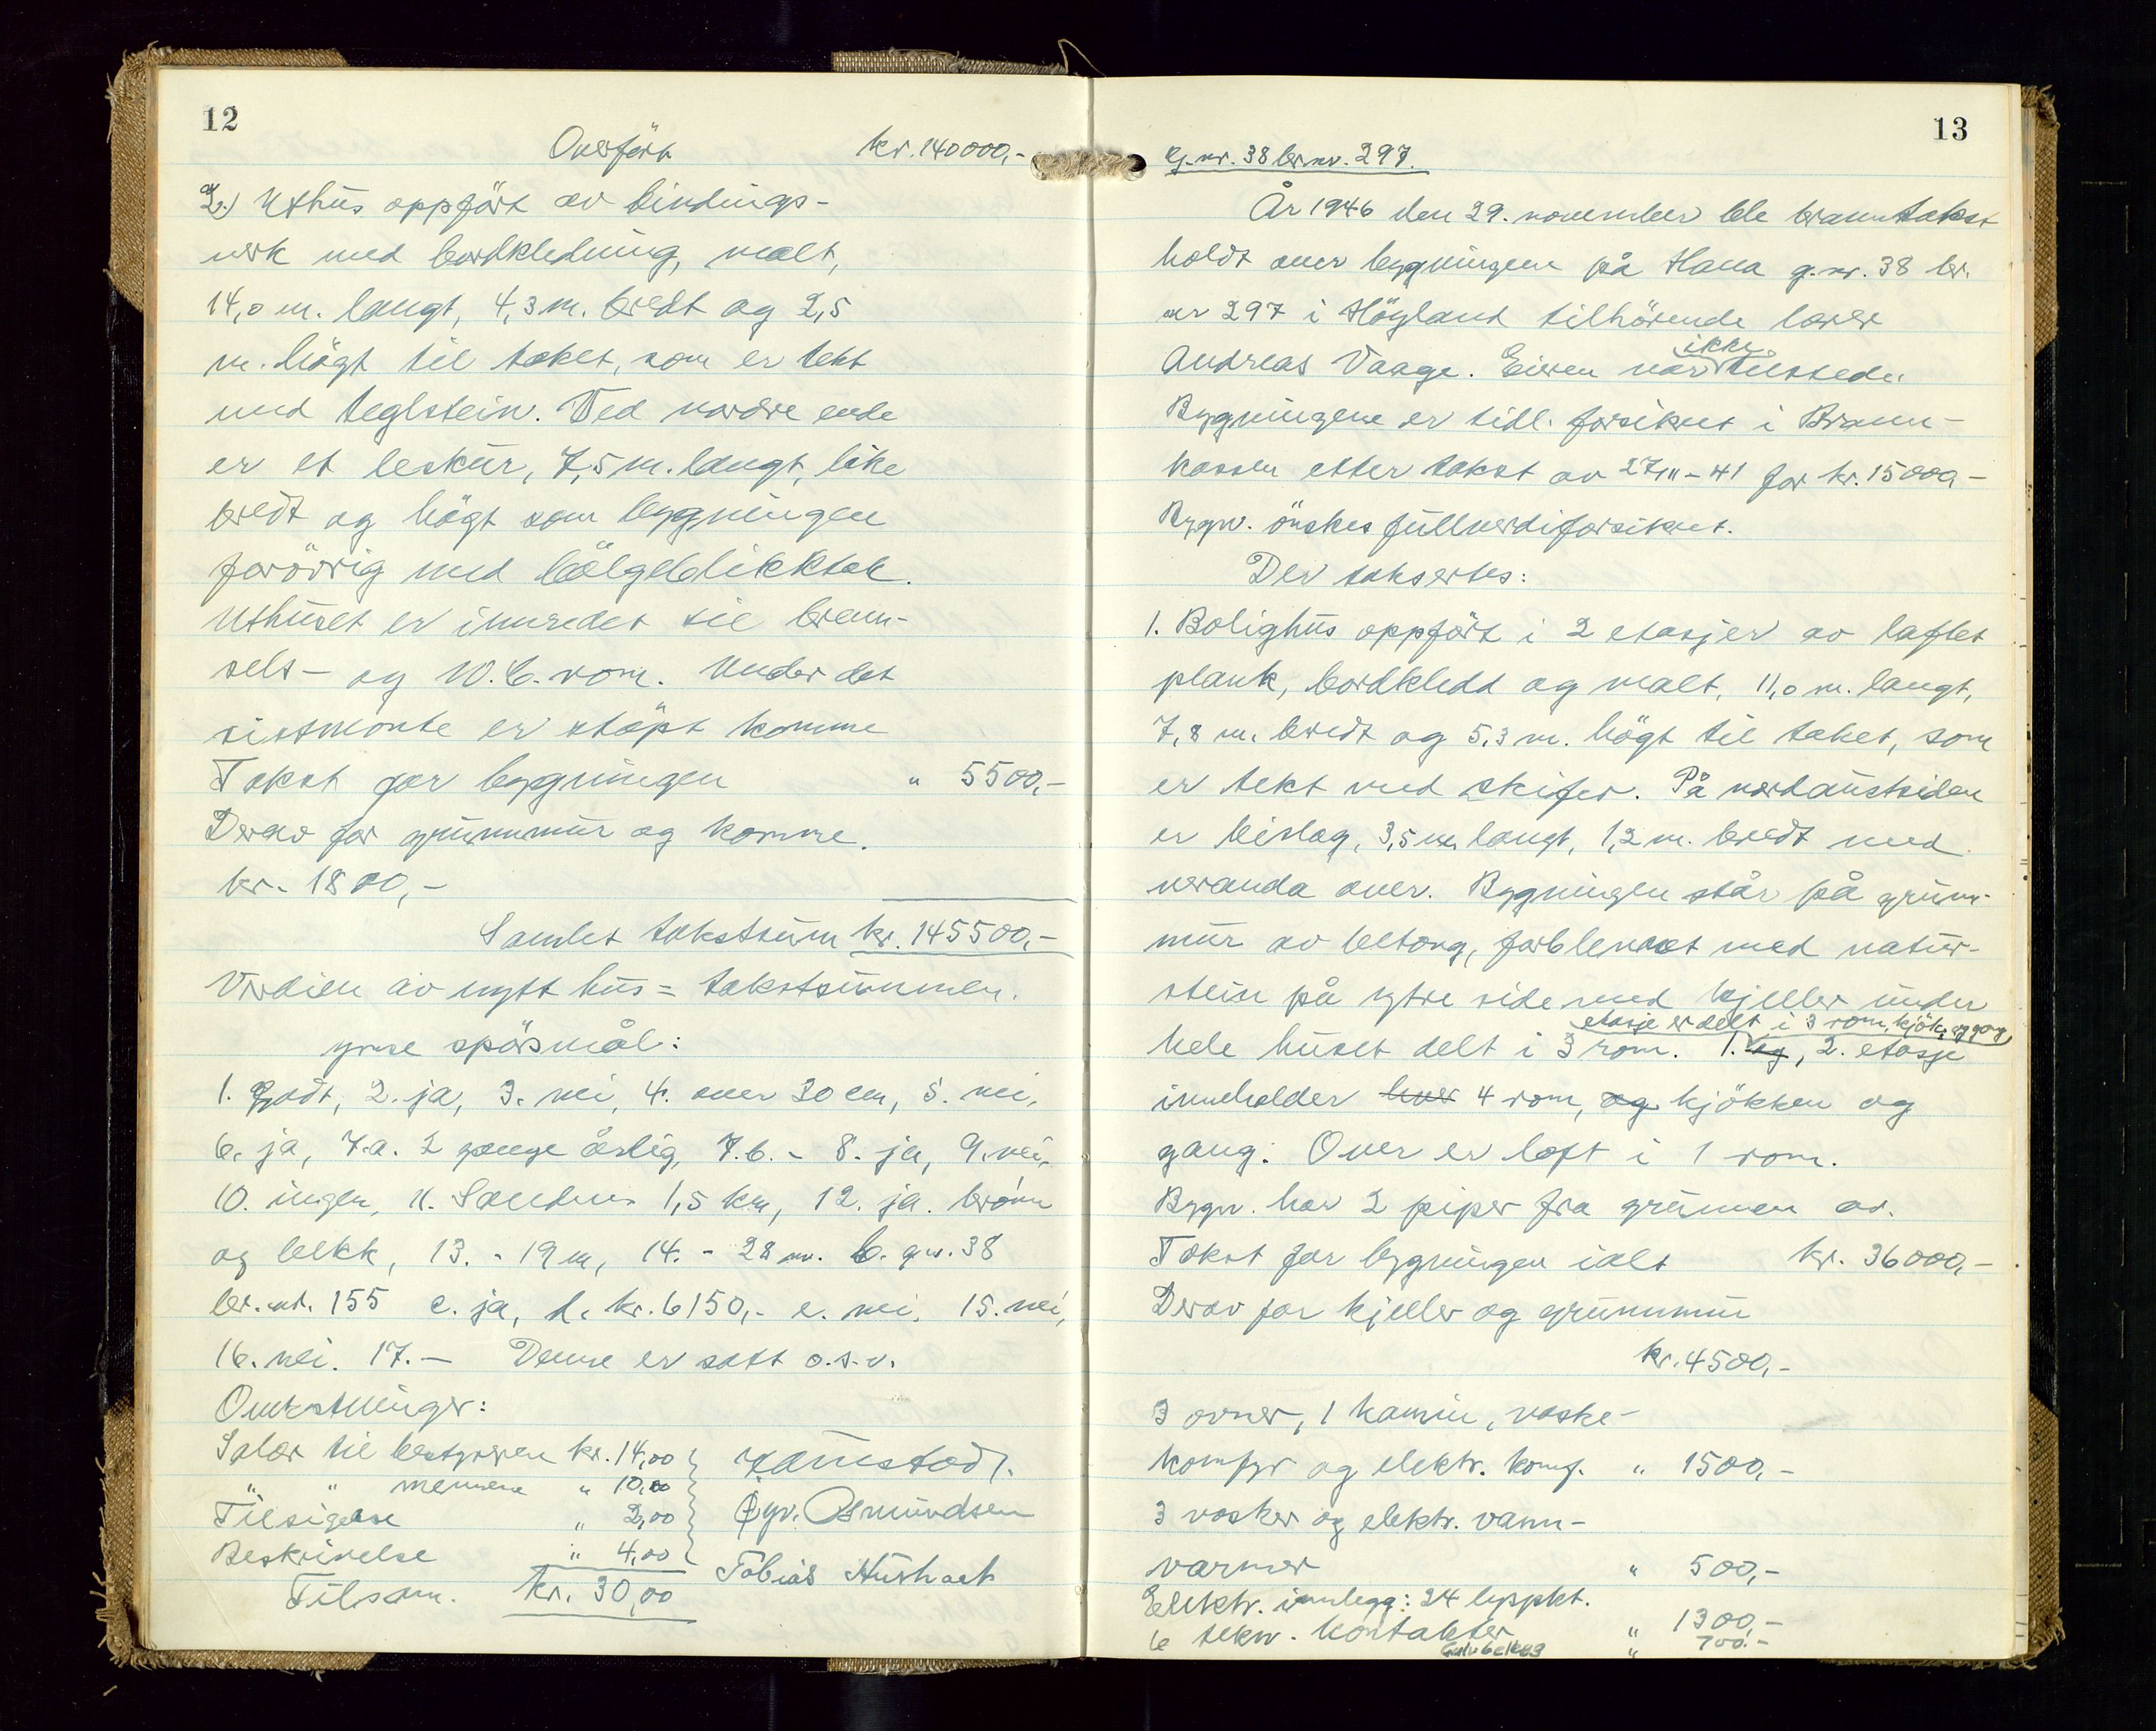 12
Overfört kr. 140000,-
2.) Uthus oppfört av bindings-
verk med bordkledning, malt,
14,0 m. langt, 4,3 m. bredt og 2,5
m. högt til taket, som er tekt
med teglstein. Ved nordre ende
er et leskur, 7,5 m. langt, like
bredt og högt som bygningen
forövrig med bölgeblikktak.
Uthuset er innredet til bren-
sels- og W.C. rom. Under det
sistnevnte er stöpt komme
Takst for bygningen " 5500,-
Derav for grunnmur og komme.
kr. 1800,-
Samlet takstsum kr. 145500,-
Verdien av nytt hus = takstsummen.
Ymse spörsmål:
1. Godt, 2. ja, 3. nei, 4. over 30 cm, 5. nei,
6. ja, 7.a. 2 gange årlig, 7.b. - 8. ja, 9. nei,
10. ingen, 11. Sandnes 1,5 km, 12. ja. brönn
og bekk, 13. - 19 m, 14. - 28 m. b. g.nr. 38
br.nr. 155 c. ja, d. kr. 6150,- e. nei, 15. nei,
16. nei. 17. — Denne er satt o.s.v.
Omkostninger:
Salær til bestyreren kr. 14,00
" " mennene " 10,00
Tilsigelse " 2,00
Öyv. Asmundsen
Beskrivelse " 4,00
Tobias
Tilsam. kr. 30,00
13
G.nr. 38 br.nr. 297.
År 1946 den 29. november ble branntakst
holdt over bygningene på Hana g.nr. 38 br.
nr 297 i Höyland tilhörende lærer
ikke
Andreas Vaage. Eieren var tilstede.
Bygningene er tidl. forsikret i Brann-
kassen etter takst av 27/11-41 for kr. 15000,-
Bygn. önskes fullverdiforsikret.
Der takseres:
1. Bolighus oppfört i 2 etasjer av laftet
plank, bordkledd og malt, 11,0 m. langt,
7,8 m. bredt og 5,3 m. högt til taket, som
er tekt med skifer. På nordaustsiden
er bislag, 3,5 m. langt, 1,2 m. bredt med
veranda over. Bygningen står på grunn-
mur av betong, forblendet med natur-
stein på ytre side med kjeller under
etasje er delt i 3 rom, kjök. og gang,
hele huset delt i 3 rom. 1. og, 2. etasje
inneholder hver 4 rom, og kjökken og
gang. Over er loft i 1 rom.
Bygn. har 2 piper fra grunnen av.
Takst for bygningen ialt kr. 36000,-
Derav for kjeller og grunnmur
kr. 4500,-
3 ovner, 1 kamin, vaske-
komfyr og elektr. komf. " 1500,-
3 vasker og elektr. vann-
varmer " 500,-
Elektr. innlegg: 24 lyspkt.
6 tekn. kontakter " 1300,-
Gulvbelegg " 700.-